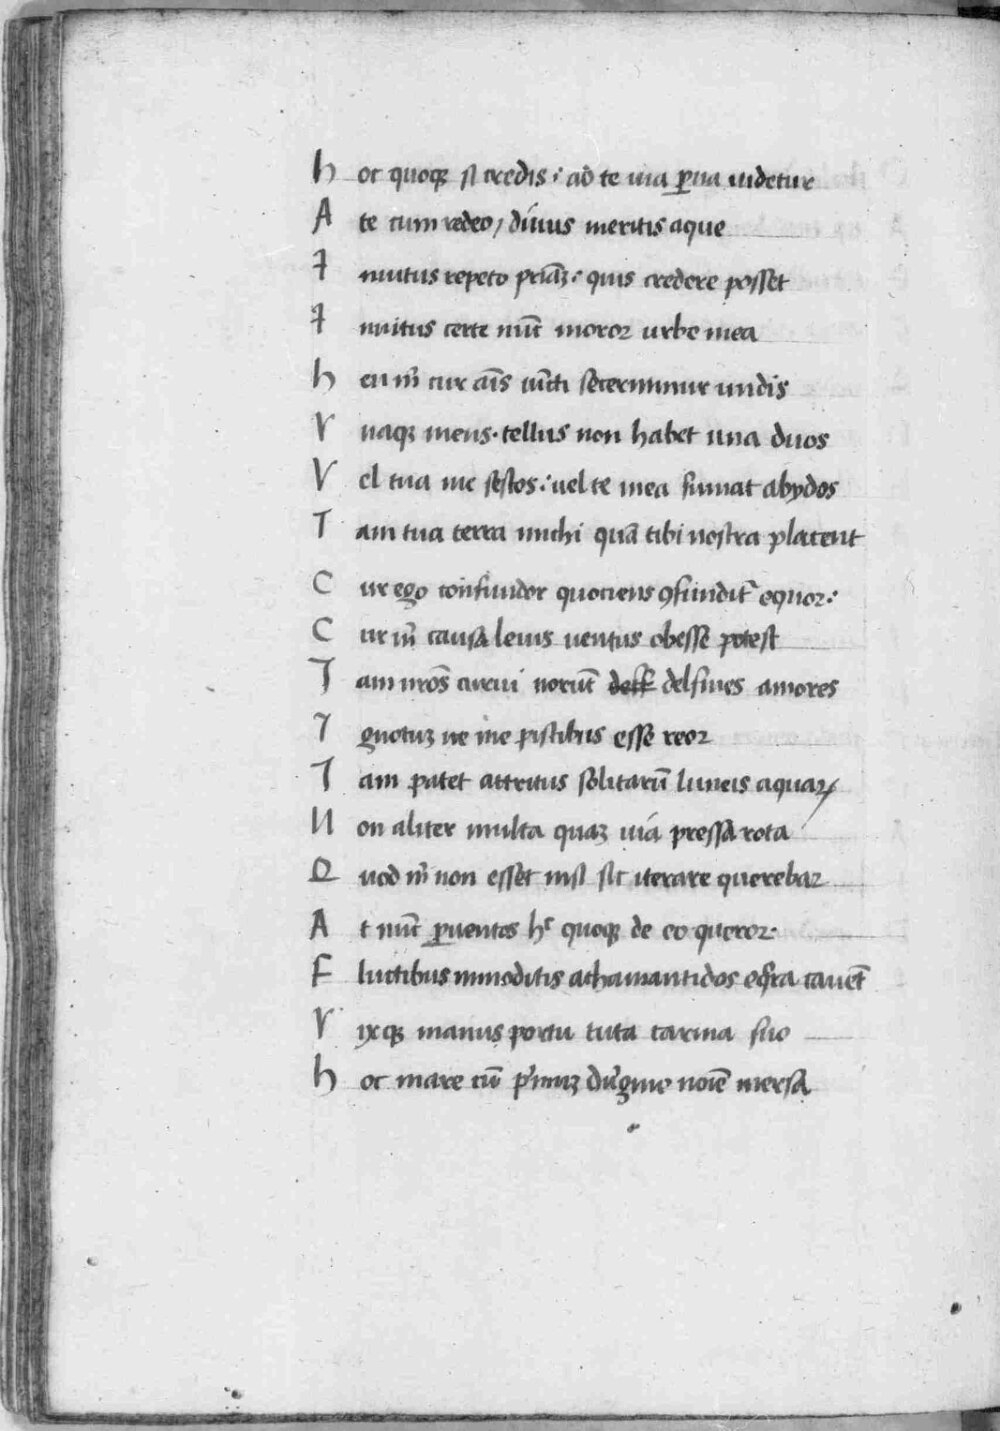 hoc quoqꝫ si credis : ad te uia ꝑua uidetur
Ate cum redeo / diuus meritis aque
Inuitus repeto pꝛiaꝫ : quis credere posset
Inuitus certe nūc moroꝛ urbe mea
heu m̄ cur aīs iūcti secernimur undis
Vnaqꝫ mens · tellus non habet una duos
Vel tua me sestos : uel te mea sumat abydos
Tam tua terra michi quā tibi nostra placent
Cur ego confundor quociens ꝯfundit᷑ equoꝛ :
Cur m̄ causa leuis uentus obesse potest
Iam nros̄ curui norūt delfines amores
Ignotuꝫ ne me piscibus esse reoꝛ
Iam patet attritus solitarū limeis aquaꝝ
Non aliter multa quaꝫ uia pressa rota
Quod m̄ non esset nisi sic iterare querebaꝛ
At nūc ꝑ uentos hᶜ quoqꝫ de eo queroꝛ ·
Fluctibus inmoditis athamantidos eqͣra cauēt
Vixqꝫ manus portu tuta carina suo
hoc mare cū pͥmuꝫ de uͥgine noīe mersa